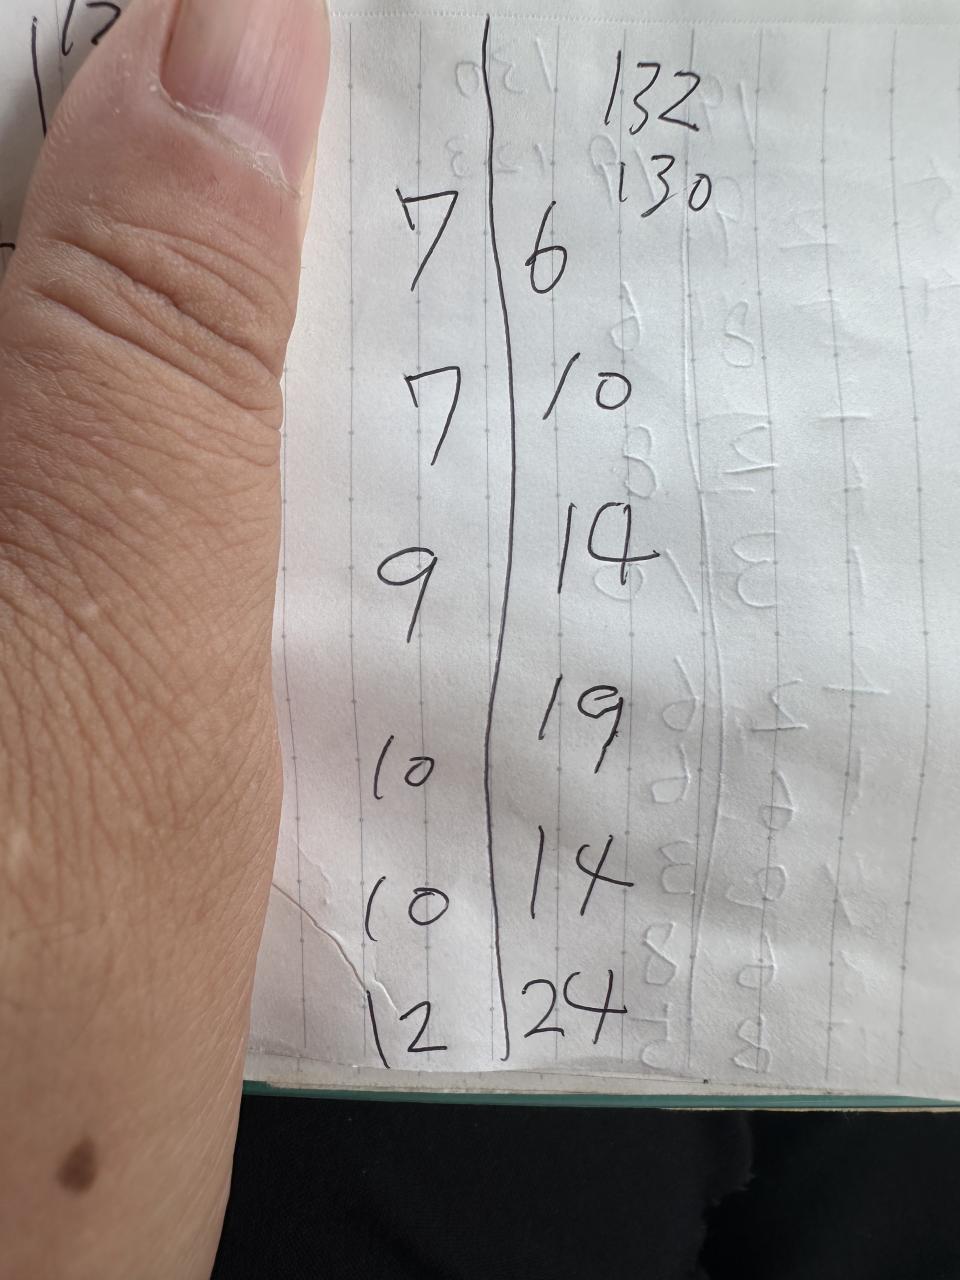 132
130
7 6
7 10
9 14
10 19
10 14
12 24